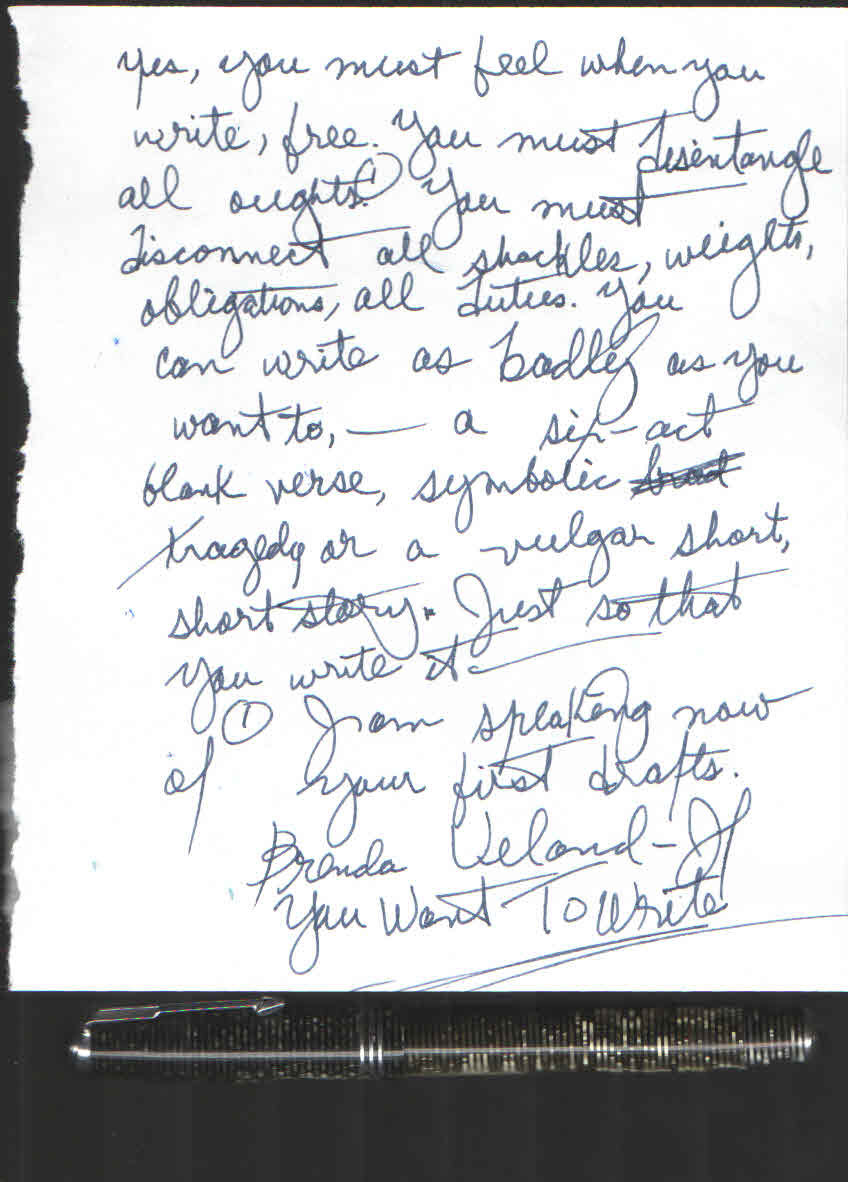 yes, you must feel when you
write, free. You must disentangle
all oughts.① You must
disconnect all shackles, weights,
obligations, all duties. You
can write as badly as you
want to, — a six-act
blank verse, symbolic
tragedy or a vulgar short,
short story. Just so that
you write it.
① I am speaking now
of your first drafts.
Brenda Ueland - If
You Want To Write